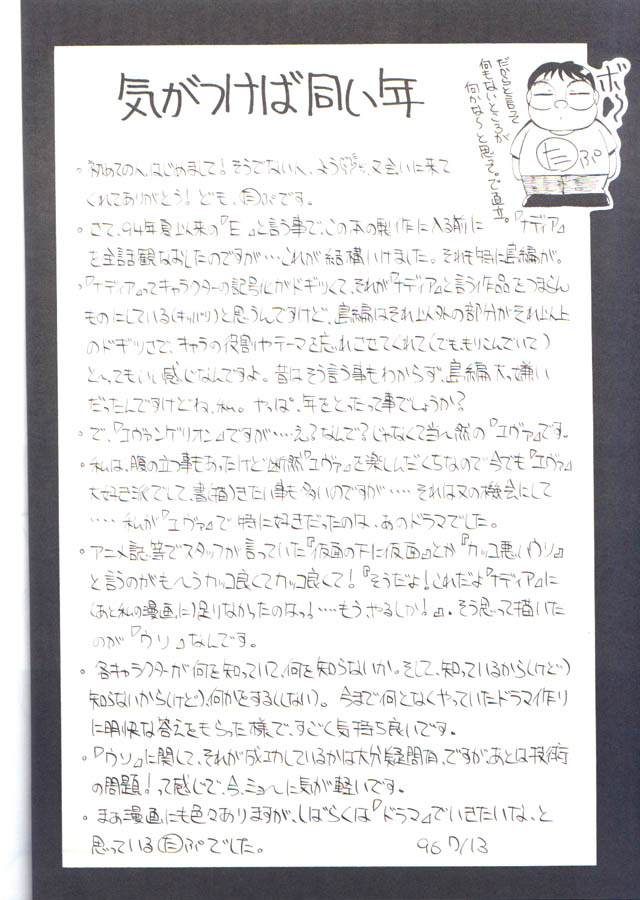 気がつけば同い年
だからと言って
何もないところが
何かな〜と思って。で直立。
ボ〜
たぷ
。初めての人、はじめまして!そうでない人、ようこそ、又会いに来て
くれてありがとう!ども、たぷです。
。さて、94年夏以来の『E』と言う事で、この本の製作に入る前に『ナディア』
を全話観なおしたのですが…これが結構いけました。それも特に島編が。
。『ナディア』ってキャラクターの記号化がドギツくて、それが『ナディア』と言う作品をつまらん
ものにしている(キッパリ)と思うんですけど、島編はそれ以外の部分がそれ以上
のドギツさで、キャラの役割やテーマを忘れさせてくれて(でも、もりこんでいて)
と〜ってもいい感じなんですよ。昔はそう言う事もわからず、島編大っ嫌い
だったんですけどね、私。やっぱ、年をとったって事でしょうか?
。で、『エヴァンゲリオン』ですが‥‥え?なんで?じゃなくて当〜然の『エヴァ』です。
。私は、腹の立つ事もあったけど断然『エヴァ』を楽しんだくちなので今でも『エヴァ』
大好き派でして、書(描)きたい事も多いのですが‥‥それは又の機会にして
‥‥私が『エヴァ』で特に好きだったのは、あのドラマでした。
。アニメ誌等でスタッフが言っていた『仮面の下に仮面』とか『カッコ悪いウソ』
と言うのがも〜うカッコ良くてカッコ良くて!『そうだよ!これだよ『ナディア』に
(あと私の漫画に)足りなかったのはっ!‥‥もう、やるしか!』。そう思って描いた
のが『ウソ』なんです。
。各キャラクターが何を知っていて、何を知らないか。そして、知っているから(けど)
知らないから(けど)、何かをする(しない)。今まで何となくやっていたドラマ作り
に明快な答えをもらった様で、すごく気持ち良いです。
。『ウソ』に関して、それが成功しているかは大分疑問有、ですが、あとは技術
の問題!って感じで、今、ミョ〜に気が軽いです。
。まぁ漫画にも色々ありますが、しばらくは『ドラマ』でいきたいな、と
思っているたぷでした。 96 7/13